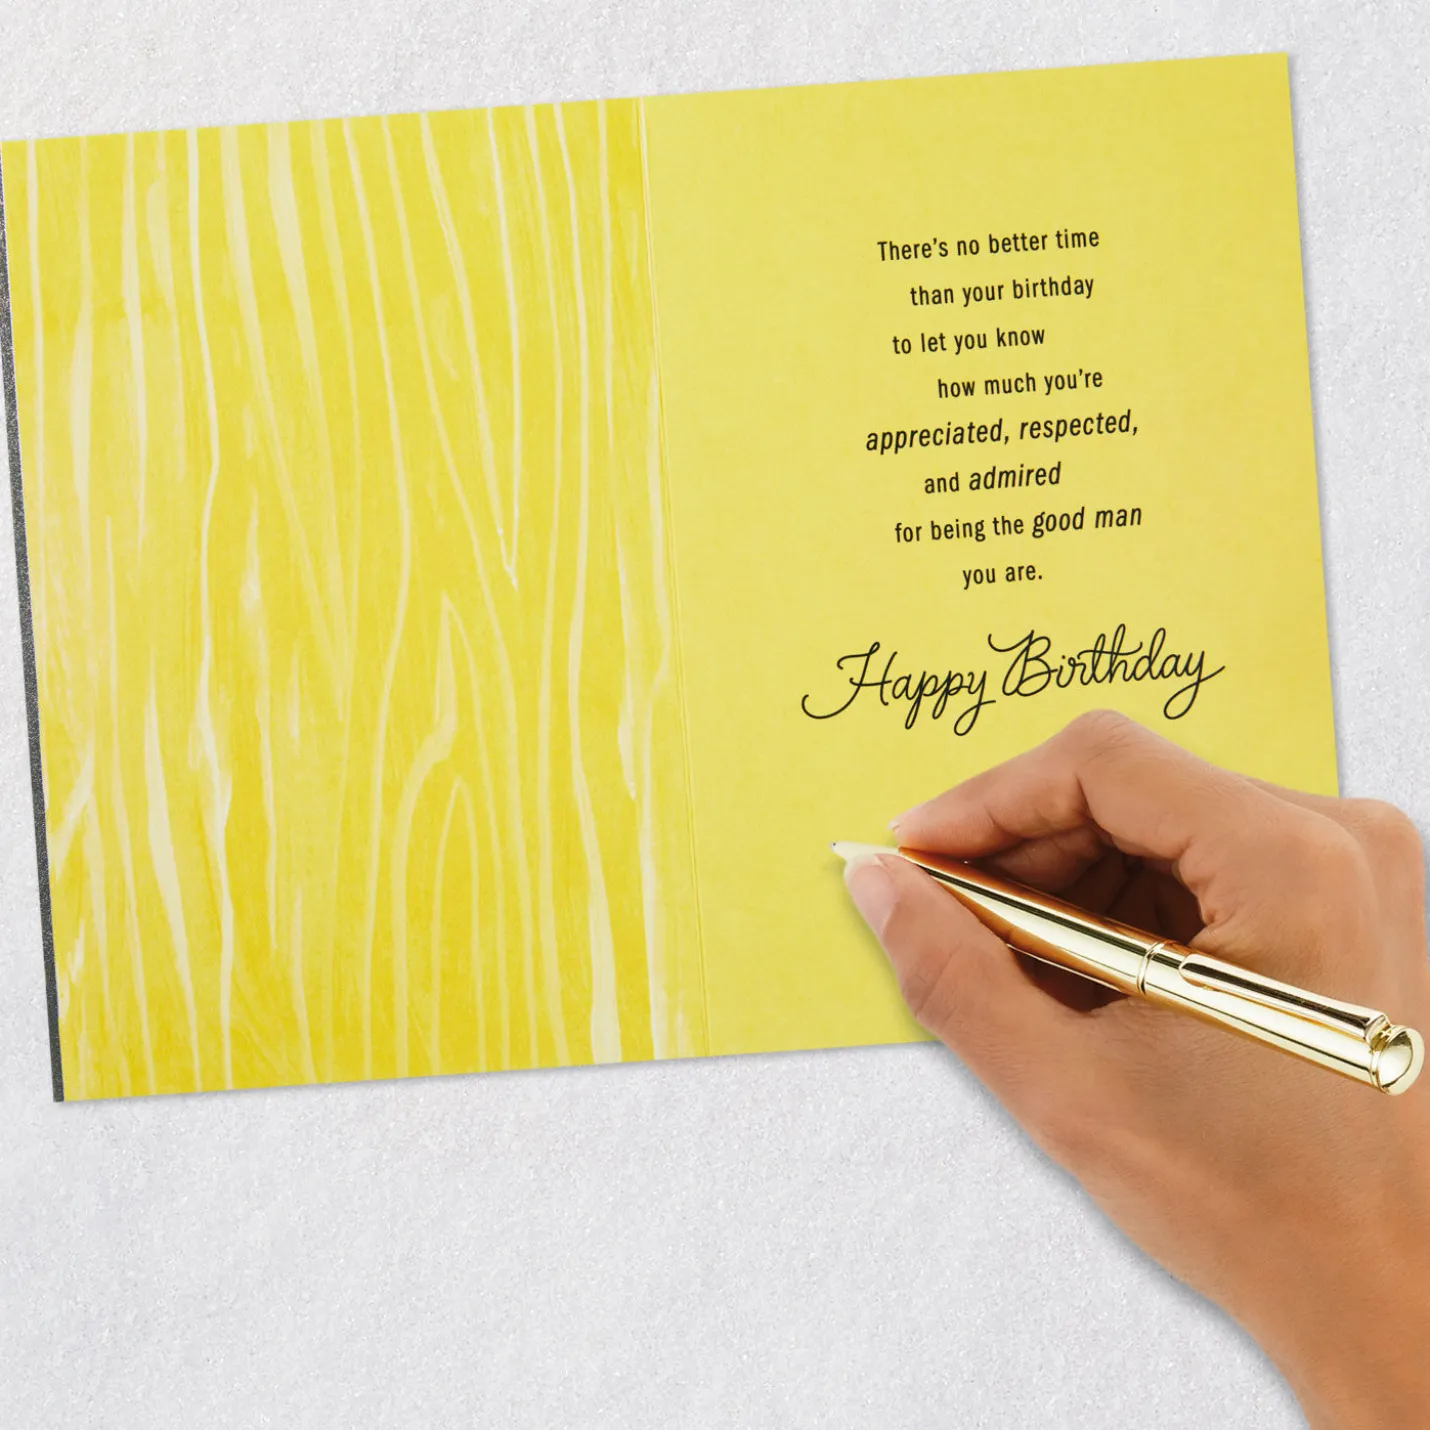 There's no better time
than your birthday
to let you know
how much you're
appreciated, respected,
and admired
for being the good man
you are.
Happy Birthday